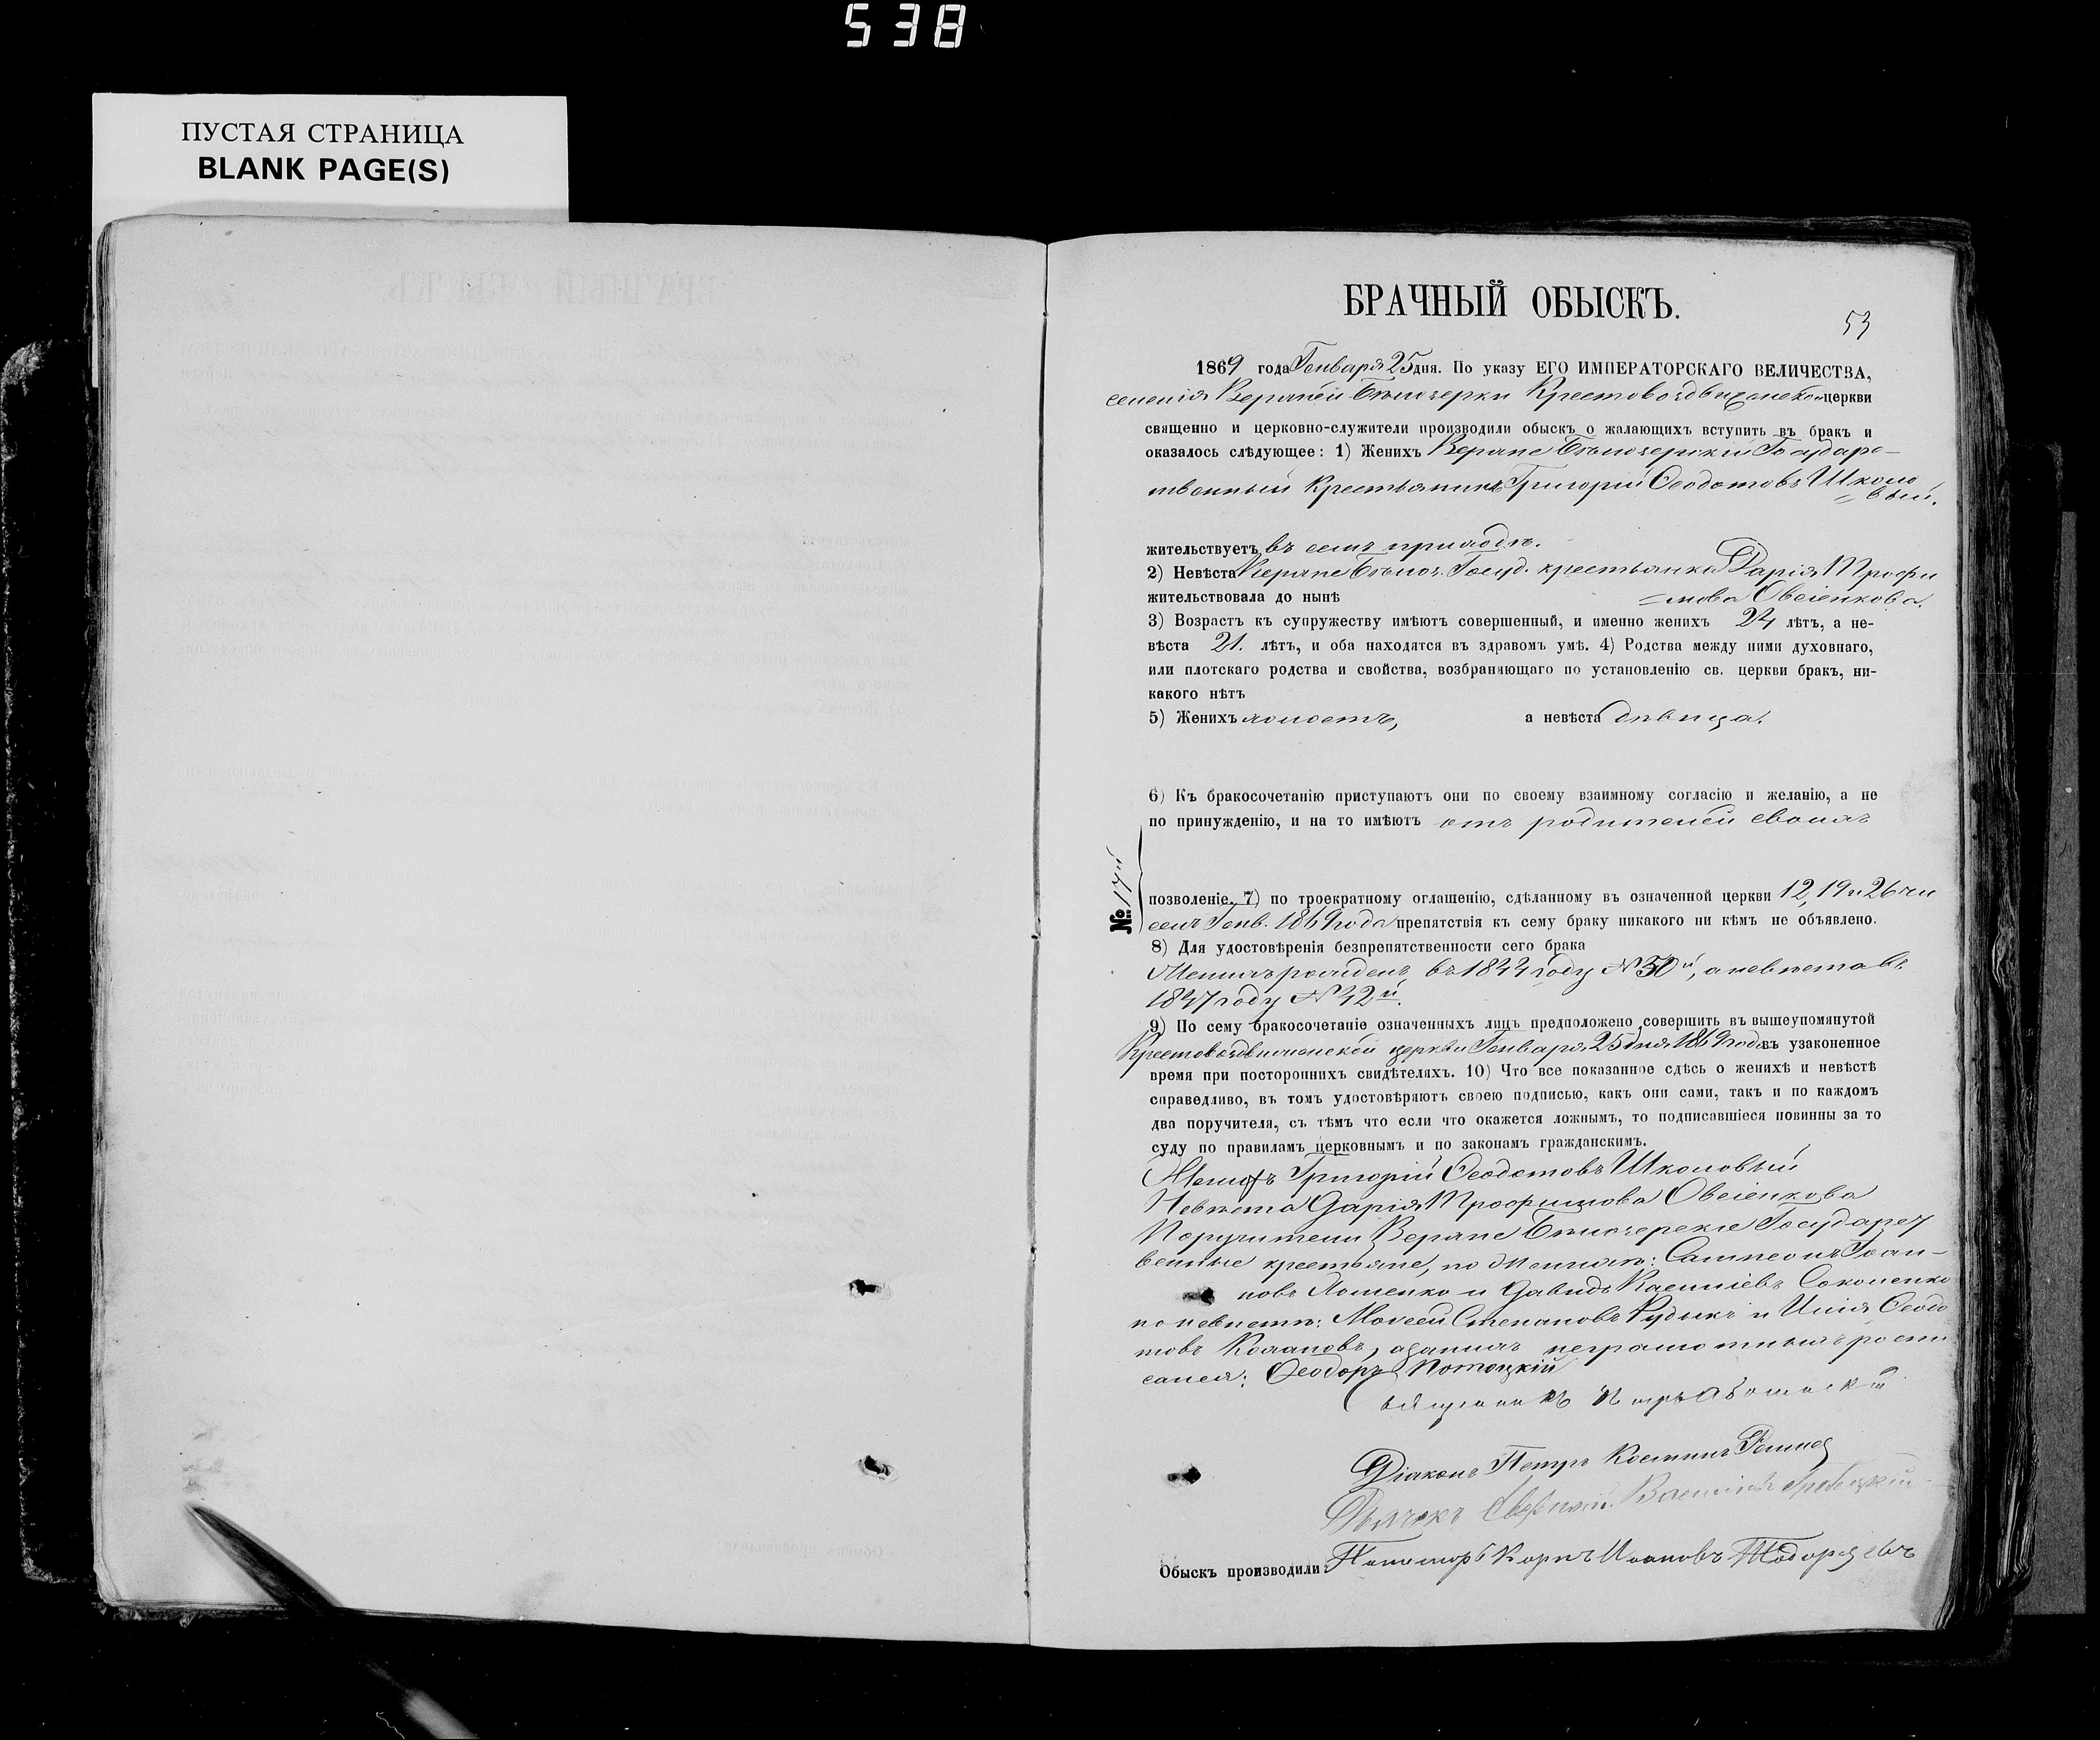 538
ПУСТАЯ СТРАНИЦА
BLANK PAGE(S)
БРАЧНЫЙ ОБЫСКЪ.
53
1869 года Генваря 25 дня. По указу ЕГО ИМПЕРАТОРСКАГО ВЕЛИЧЕСТВА,
селенія Верхней Бѣлозерки Крестовоздвиженской церкви
священно и церковно-служители производили обыскъ о жалающихъ вступить въ бракъ и
оказалось слѣдующее: 1) Женихъ Верхне Бѣлозерскій Государс-
твенный крестьянинъ Григорій Ѳеодотовъ Школо
=вый.
жительствуетъ въ семъ приходѣ.
2) Невѣста Верхне Бѣлоз. Госуд. крестьянка Дарія Трофи
жительствовала до нынѣ =мова Овсіенкова.
3) Возрастъ къ супружеству имѣютъ совершенный, и именно женихъ 24 лѣтъ, а не-
вѣста 21. лѣтъ, и оба находятся въ здравомъ умѣ. 4) Родства между ними духовнаго,
или плотскаго родства и свойства, возбраняющаго по установленію св. церкви бракъ, ни-
какого нѣтъ
5) Женихъ холостъ, а невѣста дѣвица.
6) Къ бракосочетанію приступаютъ они по своему взаимному согласію и желанію, а не
по принужденію, и на то имѣютъ отъ родителей своихъ
№ 17й
позволеніе. 7) по троекратному оглашенію, сдѣланному въ означенной церкви 12, 19 и 26 чи
селъ Генв. 1869 года препятствія къ сему браку никакого ни кѣмъ не объявлено.
8) Для удостовѣренія безпрепятственности сего брака
Женихъ рожденъ въ 1844 году № 50й, а невѣста въ
1847 году № 42й.
9) По сему бракосочетаніе означенныхъ лицъ предположено совершить въ вышеупомянутой
Крестовоздвиженской церкви Генваря 25 дня 1869 года въ узаконенное
время при постороннихъ свидѣтеляхъ. 10) Что все показанное сдѣсь о женихѣ и невѣстѣ
справедливо, въ томъ удостовѣряютъ своею подписью, какъ они сами, такъ и по каждомъ
два поручителя, съ тѣмъ что если что окажется ложнымъ, то подписавшіеся повинны за то
суду по правиламъ церковнымъ и по законамъ гражданскимъ.
Женихъ Григорій Ѳеодотовъ Школовый
Невѣста Дарія Трофимова Овсіенкова
Поручители Верхне Бѣлозерскіе Государст
венные крестьяне, по женихѣ: Сампсонъ Іоан-
новъ Лотенко и Давидъ Василіевъ Соколенко
по невѣстѣ: Моисей Степановъ Рудыкъ и Илія Ѳеодо
товъ , а за нихъ неграмотныхъ роспи
сался: Ѳеодоръ Потоцкій
Священникъ Петръ
Діаконъ Петръ Костинъ
Дьячекъ Василіевъ
Обыскъ производили: Пономарь Карпъ Ивановъ